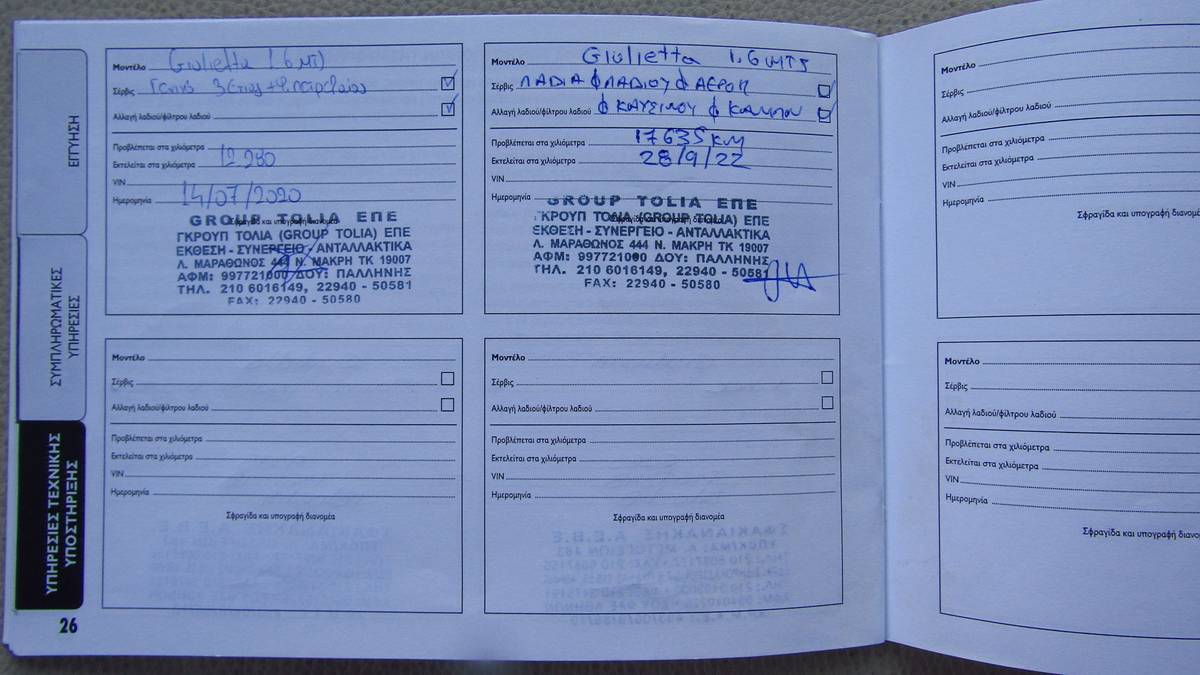 ΕΓΓΥΗΣΗ
ΣΥΜΠΛΗΡΩΜΑΤΙΚΕΣ
ΥΠΗΡΕΣΙΕΣ
ΥΠΗΡΕΣΙΕΣ ΤΕΧΝΙΚΗΣ
ΥΠΟΣΤΗΡΙΞΗΣ
26
Μοντέλο Giulietta 1.6 MTJ
Σέρβις
Αλλαγή λαδιού/φίλτρου λαδιού
Προβλέπεται στα χιλιόμετρα
Εκτελείται στα χιλιόμετρα 12.280
VIN
Ημερομηνία 14/07/2020
Σφραγίδα και υπογραφή διανομέα
GROUP TOLIA ΕΠΕ
ΓΚΡΟΥΠ ΤΟΛΙΑ (GROUP TOLIA) ΕΠΕ
ΕΚΘΕΣΗ - ΣΥΝΕΡΓΕΙΟ - ΑΝΤΑΛΛΑΚΤΙΚΑ
Λ. ΜΑΡΑΘΩΝΟΣ 444 Ν. ΜΑΚΡΗ ΤΚ 19007
ΑΦΜ: 997721000 ΔΟΥ: ΠΑΛΛΗΝΗΣ
ΤΗΛ. 210 6016149, 22940 - 50581
FAX: 22940 - 50580
Μοντέλο Giulietta 1,6 MTJ
Σέρβις ΛΑΔΙΑ Φ ΛΑΔΙΟΥ Φ ΑΕΡΟΠ
Αλλαγή λαδιού/φίλτρου λαδιού Φ ΚΑΥΣΙΜΟΥ Φ ΚΑΜΠΙΝ
Προβλέπεται στα χιλιόμετρα 17635 KM
Εκτελείται στα χιλιόμετρα 28/9/22
VIN
Ημερομηνία
Σφραγίδα και υπογραφή διανομέα
GROUP TOLIA ΕΠΕ
ΓΚΡΟΥΠ ΤΟΛΙΑ (GROUP TOLIA) ΕΠΕ
ΕΚΘΕΣΗ - ΣΥΝΕΡΓΕΙΟ - ΑΝΤΑΛΛΑΚΤΙΚΑ
Λ. ΜΑΡΑΘΩΝΟΣ 444 Ν. ΜΑΚΡΗ ΤΚ 19007
ΑΦΜ: 997721000 ΔΟΥ: ΠΑΛΛΗΝΗΣ
ΤΗΛ. 210 6016149, 22940 - 50581
FAX: 22940 - 50580
Μοντέλο
Σέρβις
Αλλαγή λαδιού/φίλτρου λαδιού
Προβλέπεται στα χιλιόμετρα
Εκτελείται στα χιλιόμετρα
VIN
Ημερομηνία
Σφραγίδα και υπογραφή διανομέα
Μοντέλο
Σέρβις
Αλλαγή λαδιού/φίλτρου λαδιού
Προβλέπεται στα χιλιόμετρα
Εκτελείται στα χιλιόμετρα
VIN
Ημερομηνία
Σφραγίδα και υπογραφή διανομέα
Μοντέλο
Σέρβις
Αλλαγή λαδιού/φίλτρου λαδιού
Προβλέπεται στα χιλιόμετρα
Εκτελείται στα χιλιόμετρα
VIN
Ημερομηνία
Σφραγίδα και υπογραφή διανομέ
Μοντέλο
Σέρβις
Αλλαγή λαδιού/φίλτρου λαδιού
Προβλέπεται στα χιλιόμετρα
Εκτελείται στα χιλιόμετρα
VIN
Ημερομηνία
Σφραγίδα και υπογραφή διανο